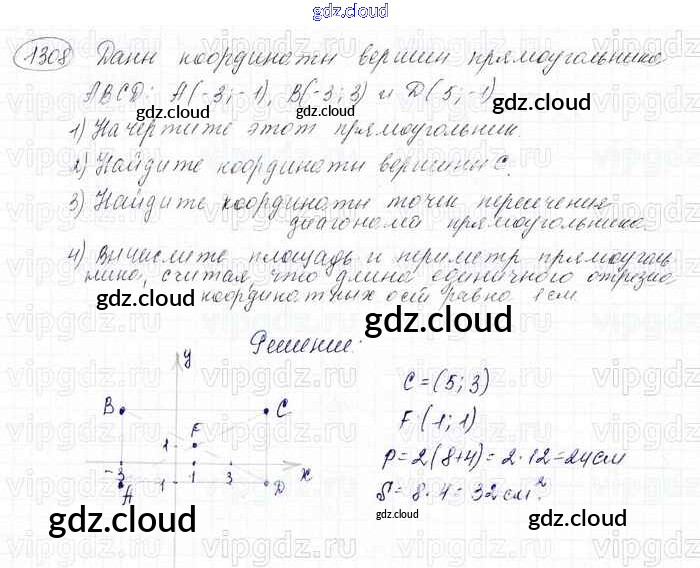 gdz.cloud
1308 Даны координаты вершин прямоугольника
ABCD: A(-3;-1), B(-3;3) и D(5;-1)
1) Начертите этот прямоугольник.
2) Найдите координаты вершины C.
3) Найдите координаты точки пересечения
диагоналей прямоугольника.
4) Вычислите площадь и периметр прямоуголь-
ника, считая, что длина единичного отрезка
координатных осей равна 1 см.
gdz.cloud
gdz.cloud
gdz.cloud
gdz.cloud
Решение:
y
B
C
F
1
-3
1
3
x
A
1
D
C = (5; 3)
F (1; 1)
P = 2(8+4) = 2·12 = 24 см
S = 8·4 = 32 см².
gdz.cloud
gdz.cloud
gdz.cloud